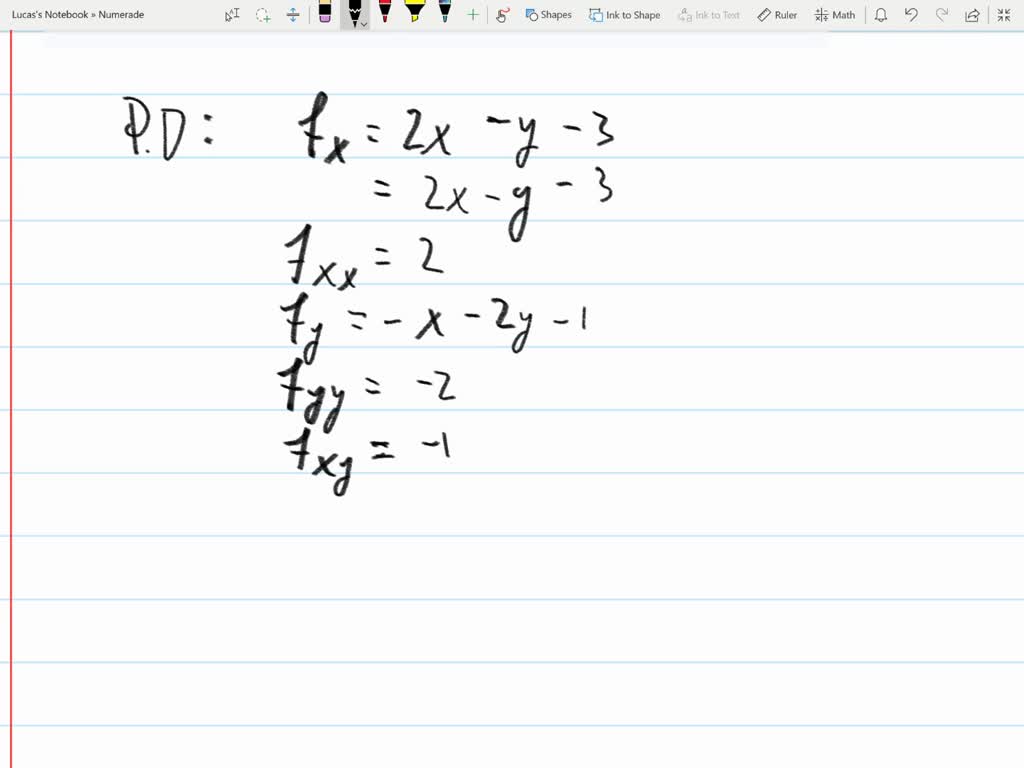 Lucas's Notebook » Numerade
Shapes Ink to Shape Ink to Text Ruler Math
P.D: fₓ = 2x - y - 3
= 2x - y - 3
fₓₓ = 2
f_y = - x - 2y - 1
f_yy = -2
f_xy = -1